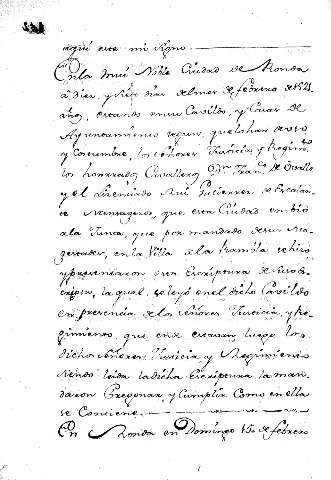 aqui este mi signo
En la mui Noble Ciudad de Ronda
a diez, y siete dias del mes de febrero de 1521
años, estando en su Cavildo, y Casas de
Ayuntamiento segun, que lo han de uso
y Costumbre, los señores Justicia, y Regimto
los honrrados Cavalleros Dn Franco de Ovalle
y el Licenciado Rui Gutierrez de Escalan
te Mensageros, que esta Ciudad embió
a la Junta, que por mandado de sus Ma
gestades, en la Villa de la Rambla se hizo
y presentaron una Escriptura de suso
escripta, la qual, se leyó en el dicho Cavildo
en presencia de los señores Justicia, y Re
gimiento, que en el estavan, luego los
dichos señores Justicia, y Regimiento
siendo leida la dicha Escriptura la man
daron Pregonar, y Cumplir Como en ella
se Contiene
En Ronda en Domingo de febrero